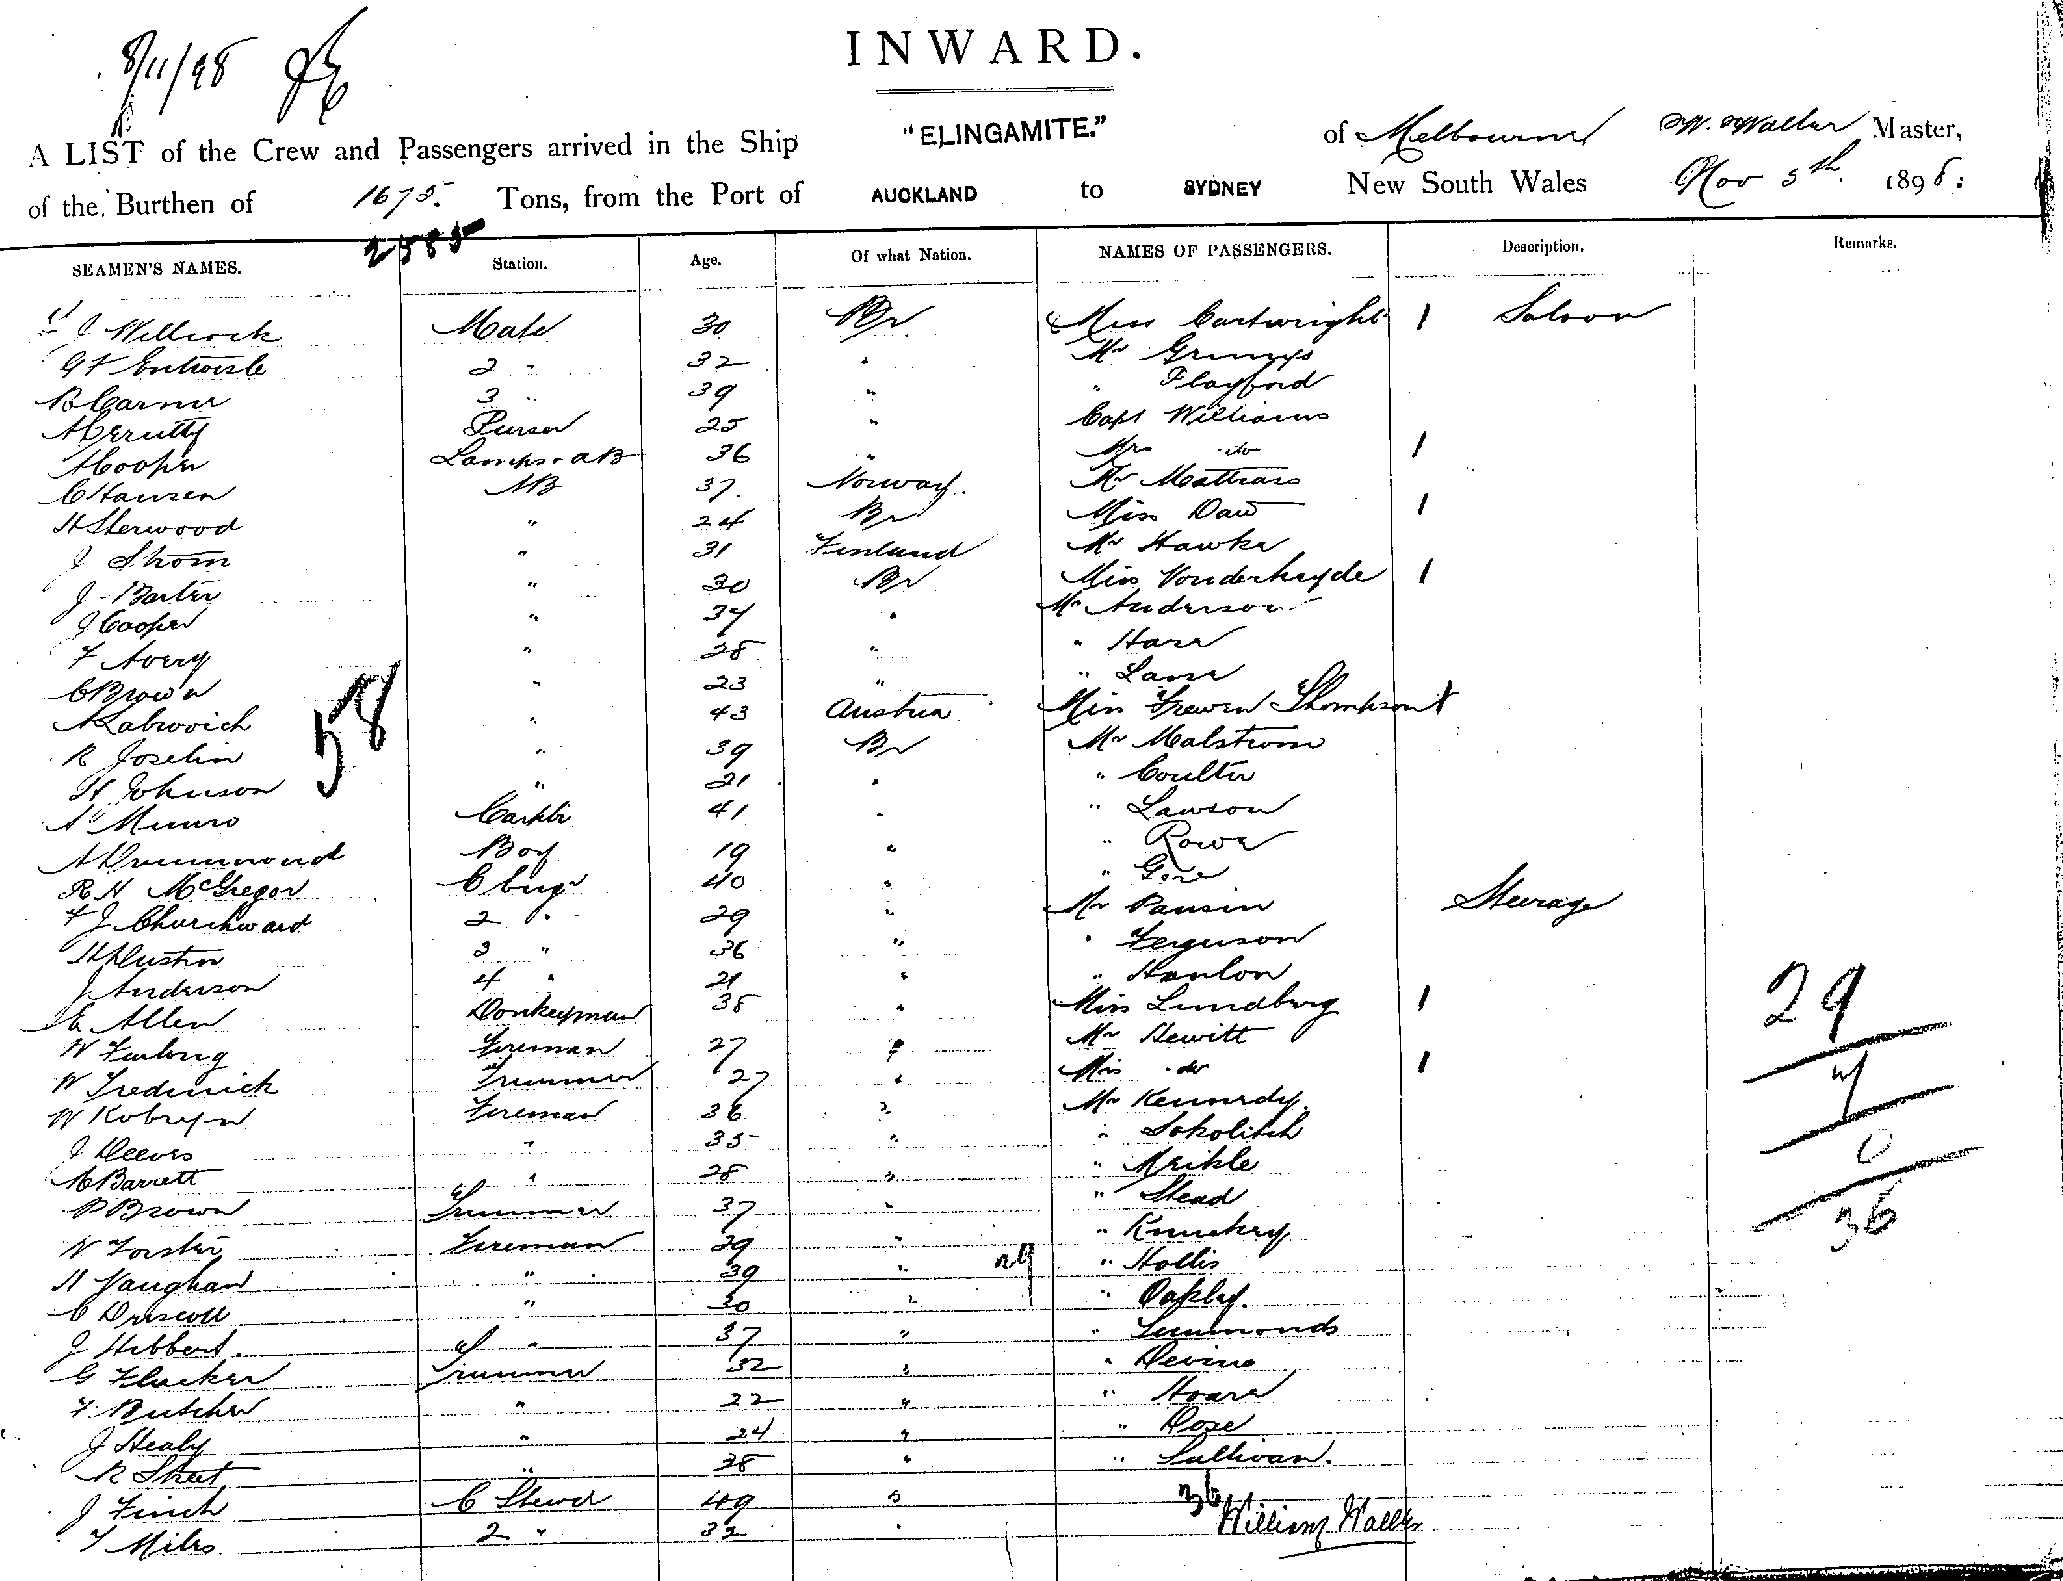 8/11/98
INWARD.
A LIST of the Crew and Passengers arrived in the Ship "ELINGAMITE." of Melbourne W. Waller Master,
of the Burthen of 1675. Tons, from the Port of AUCKLAND to SYDNEY New South Wales Nov 5th. 1898:
2585
SEAMEN'S NAMES. Station. Age. Of what Nation. NAMES OF PASSENGERS. Description. Remarks.
J Willcock Mate 30 Br Miss Cartwright 1 Saloon
G F Entwisle 2 " 32 " Mr
B Carner 3 " 39 " " Playford
Purser 25 " Capt Williams
A Cooper Lamps. AB 36 " Mrs do 1
C Hansen AB 37. Norway. Mr
H Sherwood " 24 Br Miss Daw 1
J Strom " 31 Finland Mr Hawke
J Barter " 30 Br Miss Vonderheyde 1
J Cooper " 37 " Mr Anderson
F Avery " 28 " " Hare
C Brown " 23 " " Lane
" 43 Austria Miss Frewen Thompson 1
58
R Joselin " 39 Br Mr Malstrom
H Johnson " 21 " " Coulter
A Munro 41 " " Lawson
A Drummond Boy 19 " " Rowe
R H McGregor C Engr 40 " " Gore
F J Churchward 2 " 29 " Mr Steerage
3 " 36 " " Ferguson
J Anderson 4 " 21 " " Hanlon
E Allen Donkeyman 38 " Miss Lundberg 1
W Furlong Fireman 27 " Mr Hewitt
W Tredinick Trimmer 27 " Miss do 1
W Kobryn Fireman 36 " Mr Kennedy.
J Deeves " 35 " " Sokolitch
A Barrett " 28 " " Meikle
P Brown Trimmer 37 " " Stead
W Forster Fireman 29 " "
H Vaughan " 39 " 29 " Hollis
C Driscoll " 30 " " Oakley.
J Hibbert. " 37 " " Simmonds
G Flucker Trimmer 32 " " Devine
F Butcher " 22 " " Hoare
J Healy " 24 " " Dose
R Skeet " 28 " " Sullivan.
J Finch C Stewd 49 " 36
F Miles 2 " 32 " William Waller
29
7
0
36